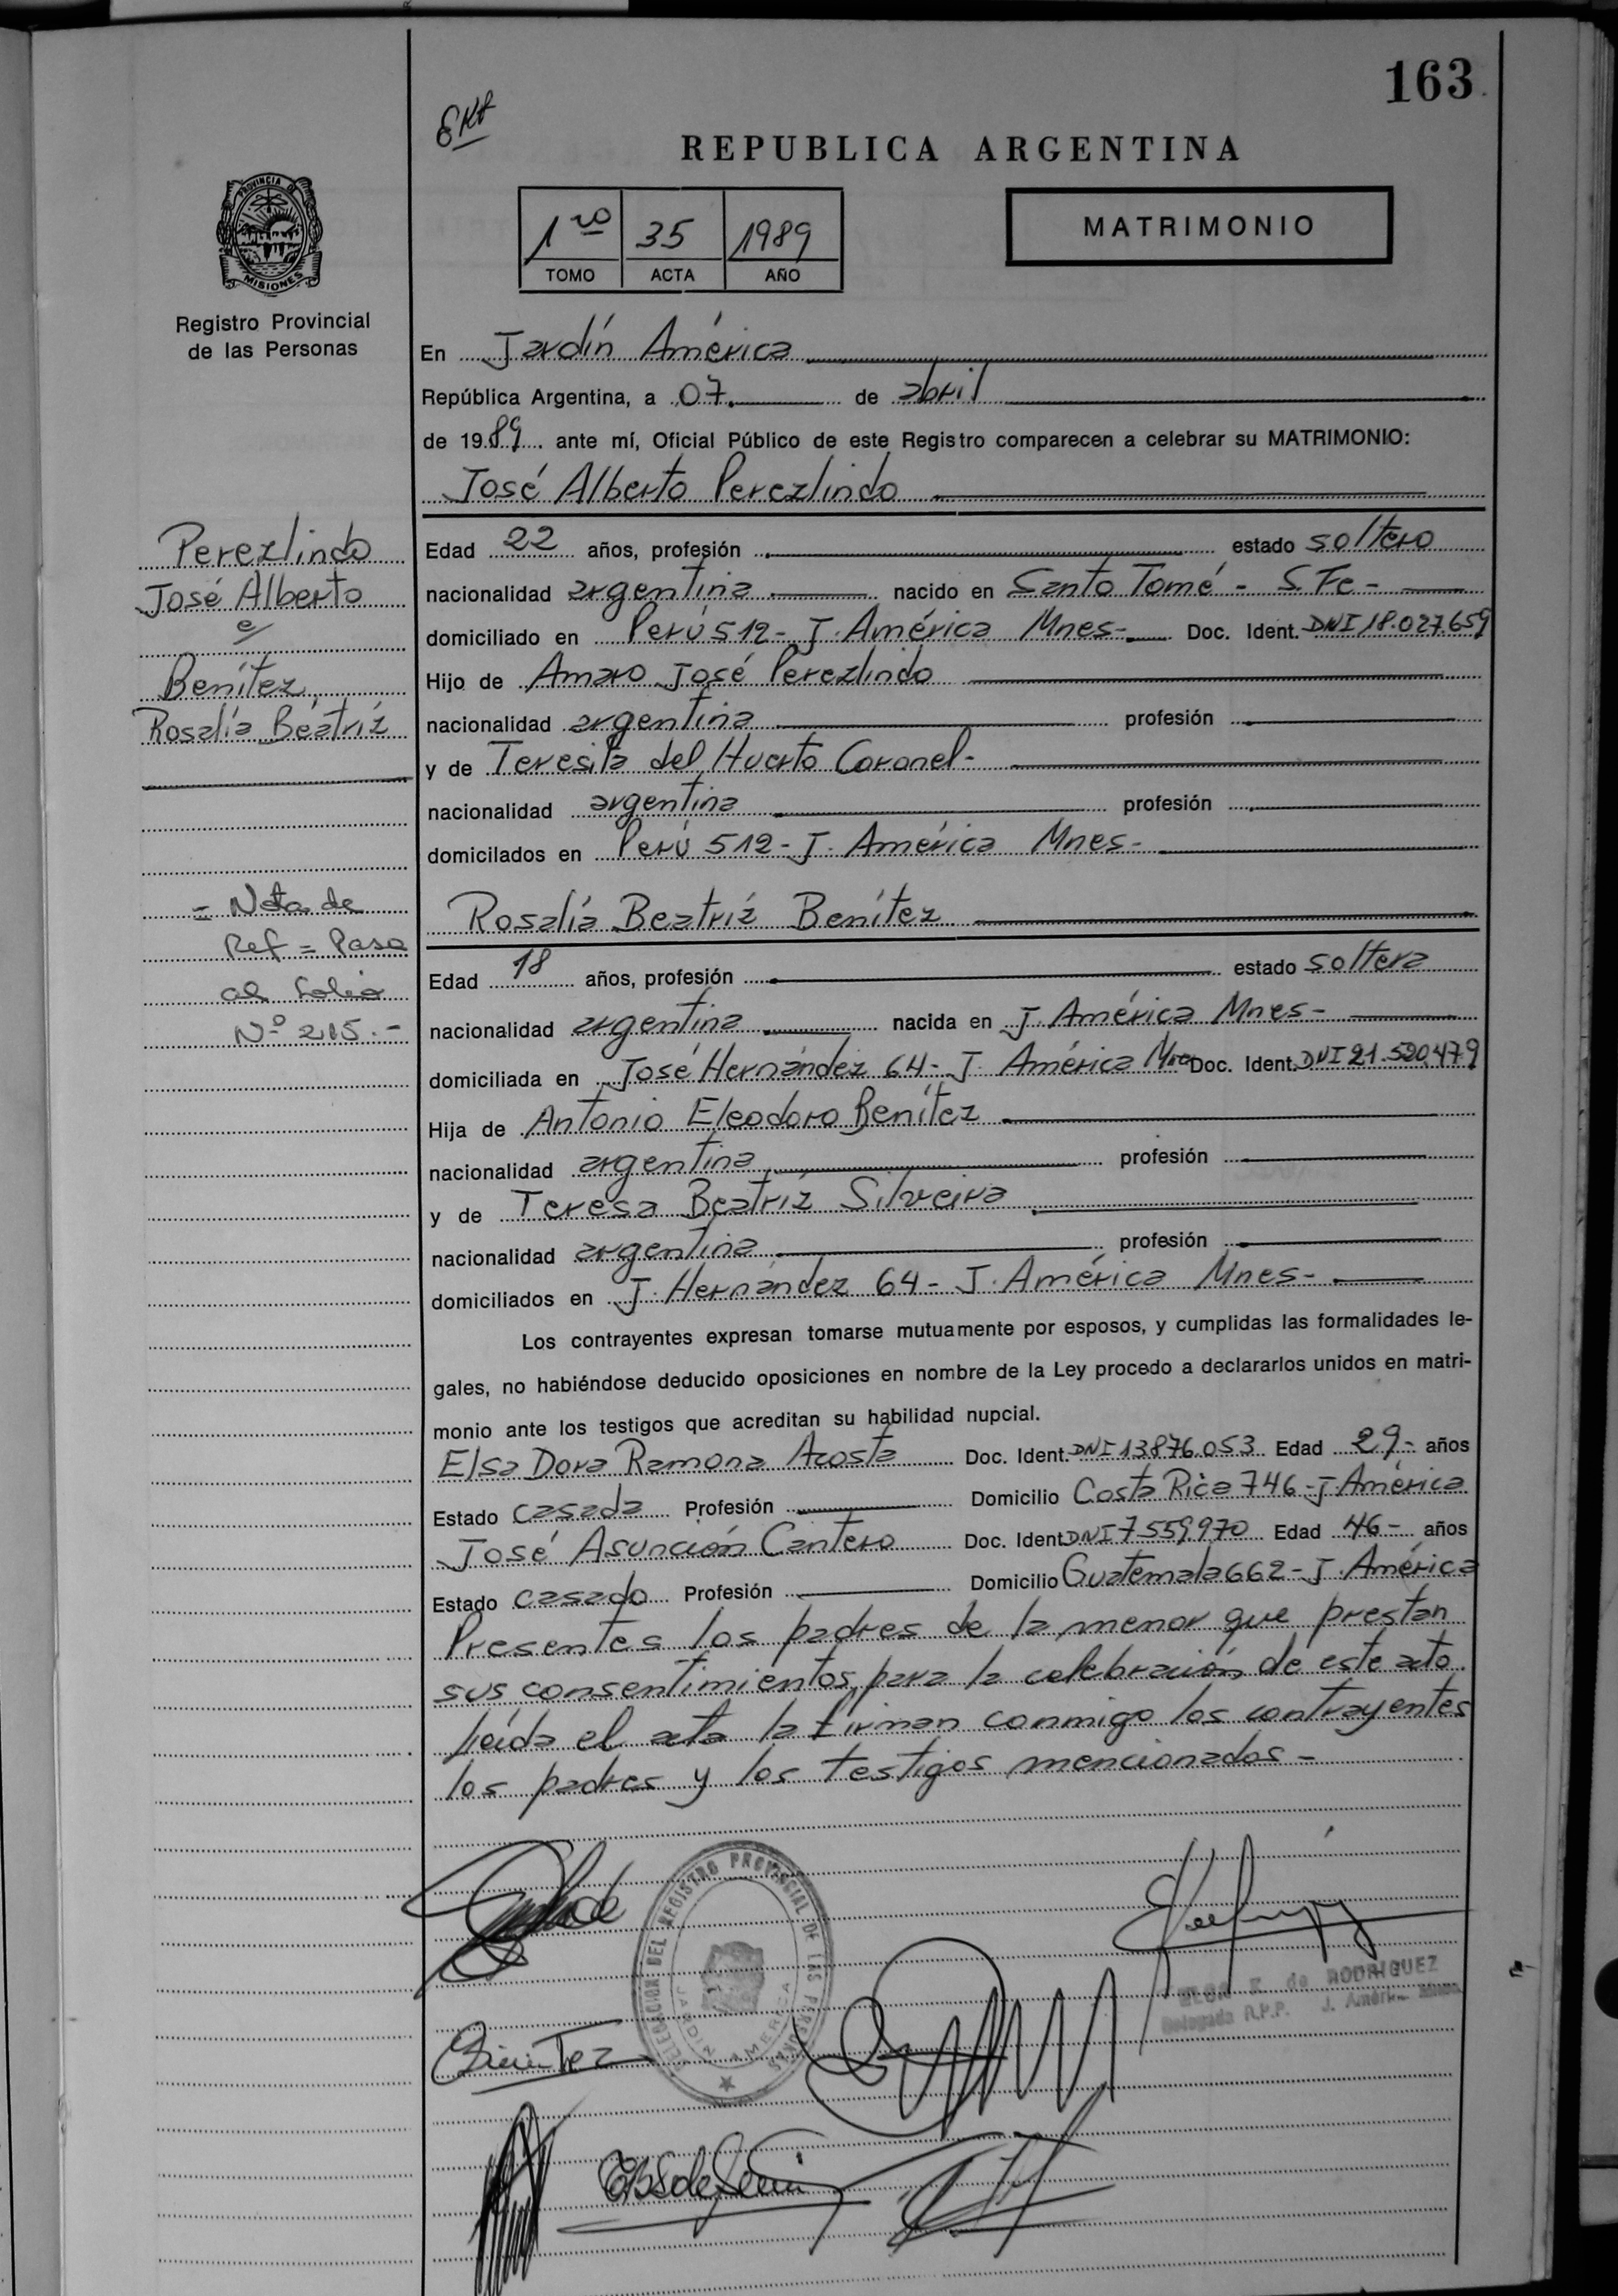 163
REPUBLICA ARGENTINA
1ro 35 1989
TOMO ACTA AÑO
MATRIMONIO
PROVINCIA DE
MISIONES
Registro Provincial
de las Personas
En Jardín América
República Argentina, a 07. de abril
de 1989 ante mí, Oficial Público de este Registro comparecen a celebrar su MATRIMONIO:
José Alberto Perezlindo
Perezlindo
José Alberto
e/
Benítez
Rosalía Béatriz
Edad 22 años, profesión estado soltero
nacionalidad argentina nacido en Santo Tomé - S. Fe -
domiciliado en Perú 512 - J. América Mnes - Doc. Ident. DNI 18.027.659
Hijo de Amaro José Perezlindo
nacionalidad argentina profesión
y de Teresita del Huerto Coronel -
nacionalidad argentina profesión
domicilados en Perú 512 - J. América Mnes -
- Nota de
Ref = Pasa
al folio
Nº 215.-
Rosalía Beatríz Benítez
Edad 18 años, profesión estado soltera
nacionalidad argentina nacida en J. América Mnes -
domiciliada en José Hernández 64 - J. América Mnes Doc. Ident. DNI 21.520.479
Hija de Antonio Eleodoro Benítez
nacionalidad argentina profesión
y de Teresa Beatríz Silveira
nacionalidad argentina profesión
domiciliados en J. Hernández 64 - J. América Mnes -
Los contrayentes expresan tomarse mutuamente por esposos, y cumplidas las formalidades le-
gales, no habiéndose deducido oposiciones en nombre de la Ley procedo a declararlos unidos en matri-
monio ante los testigos que acreditan su habilidad nupcial.
Elsa Dora Ramona Acosta Doc. Ident. DNI 13876.053 Edad 29 - años
Estado casada Profesión Domicilio Costa Rica 746 - J América
José Asunción Cantero Doc. Ident. DNI 7.559.970 Edad 46 - años
Estado casado Profesión Domicilio Guatemala 662 - J. América
Presentes los padres de la menor que prestan
sus consentimientos, para la celebración de este acto.
Leída el acta la firman conmigo los contrayentes
los padres y los testigos mencionados -
DELEGACION DEL REGISTRO PROVINCIAL DE LAS PERSONAS
JARDIN AMERICA
de RODRIGUEZ
Delegada R.P.P. J. América